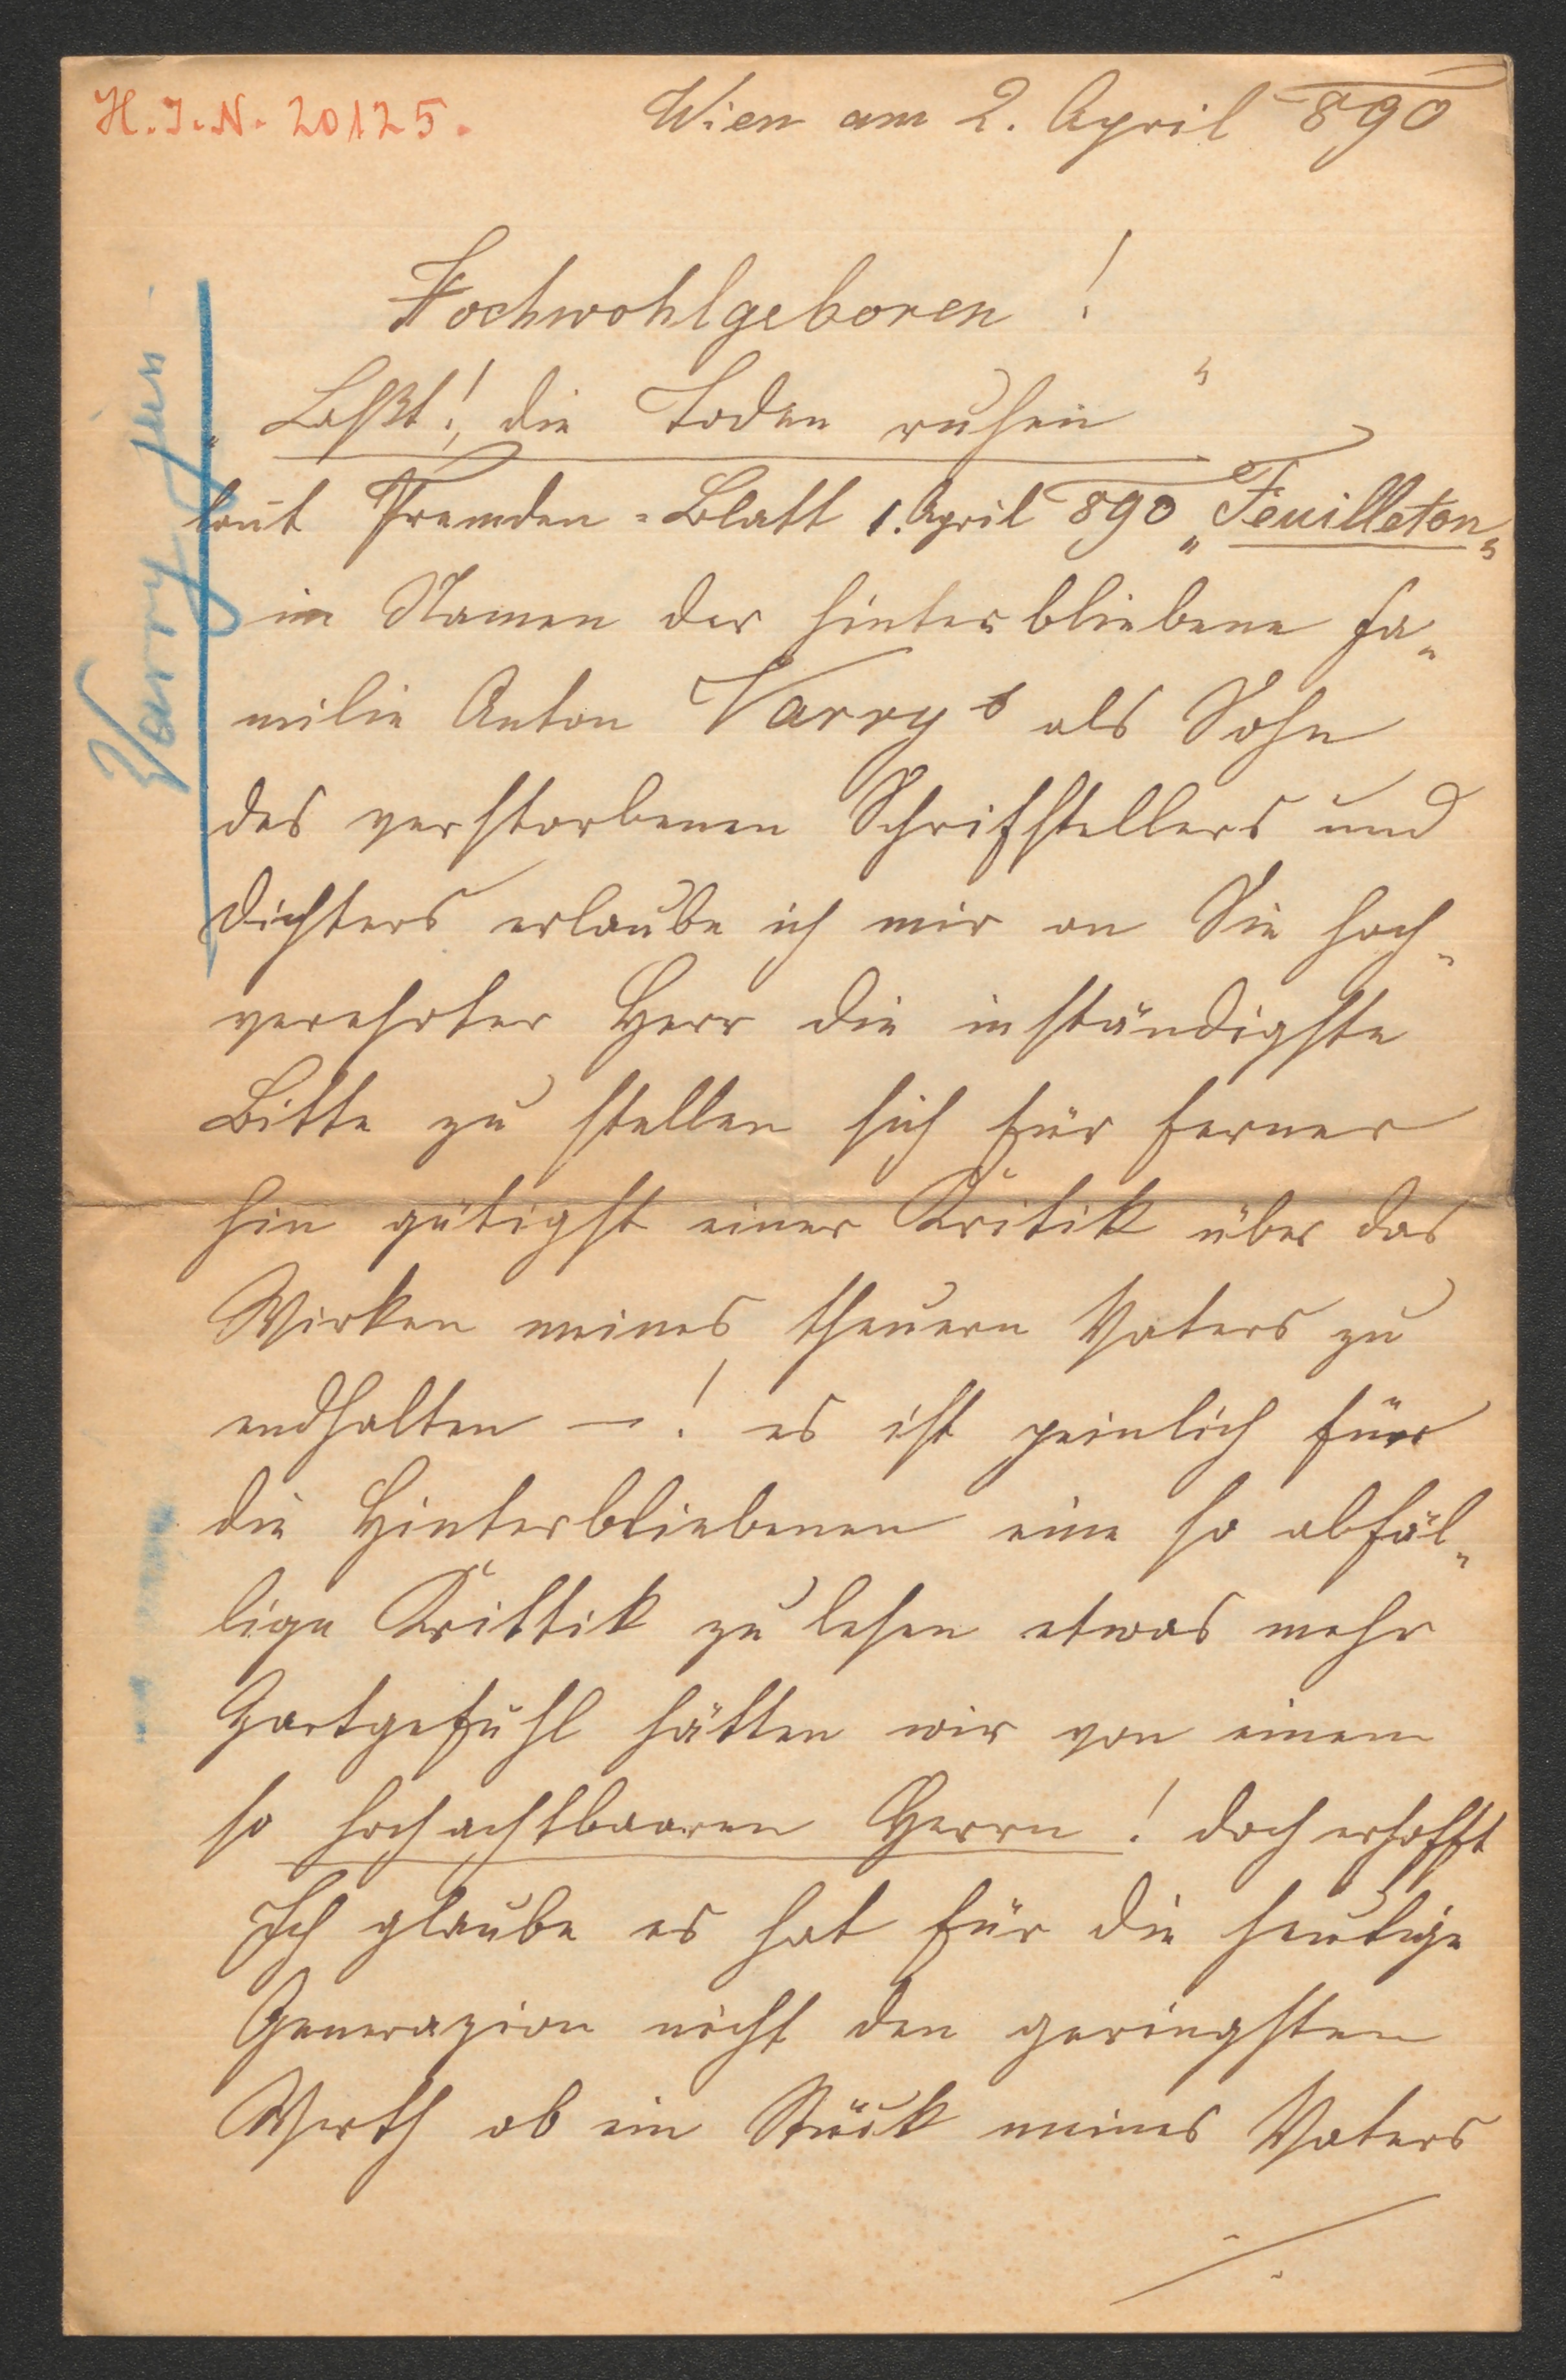 H.I.N. 20125.
Wien am 2. April 890
Hochwohlgeboren!
„Laßt! die Toden ruhen"
laut Fremden-Blatt 1. April 890 „Feuilleton"
im Namen der hinterbliebene Fa-
milie Anton Varry's als Sohn
des verstorbenen Schrifstellers und
Dichters erlaube ich mir an Sie hoch-
verehrter Herr die inständigste
Bitte zu stellen sich für ferner
hin gütigst einer Kritik über das
Wirken meines theuern Vaters zu
endhalten —! es ist peinlich für
die Hinterbliebenen eine so abfäl-
lige Krittik zu lesen etwas mehr
Zartgefühl hätten wir von einem
so hochachtbaaren Herrn! doch erhofft
Ich glaube es hat für die heutige
Generazion nicht den geringsten
Werth ob ein Stück meines Vaters
./.
Varry jun